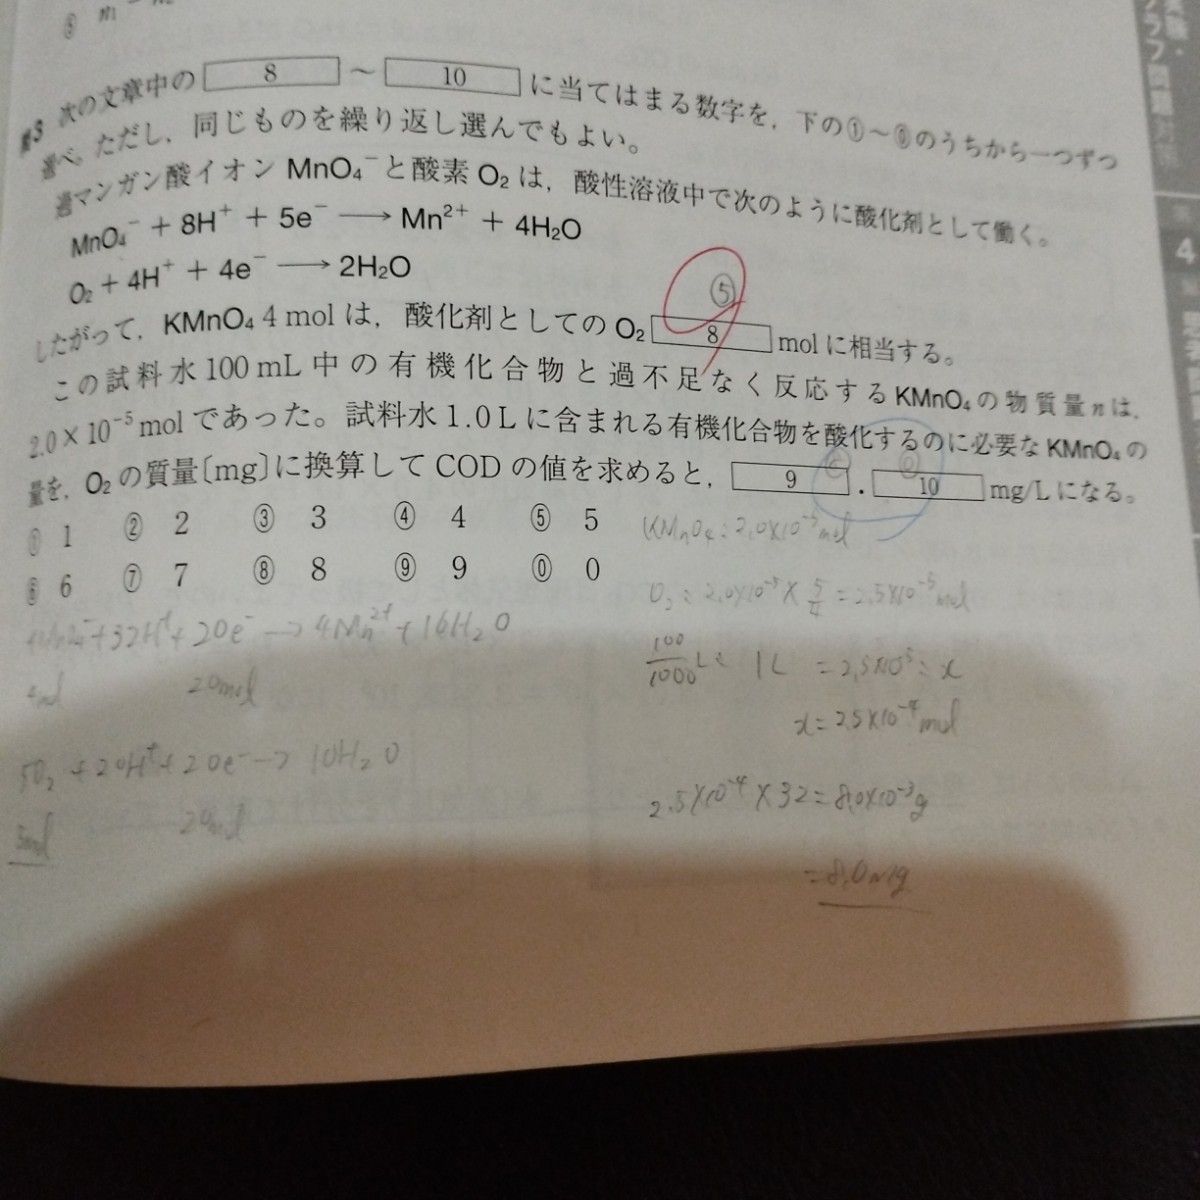 次の文章中の 8 ～ 10 に当てはまる数字を，下の①～⓪のうちから一つずつ
選べ。ただし，同じものを繰り返し選んでもよい。
過マンガン酸イオン MnO₄⁻と酸素 O₂ は，酸性溶液中で次のように酸化剤として働く。
MnO₄⁻ + 8H⁺ + 5e⁻ ⟶ Mn²⁺ + 4H₂O
O₂ + 4H⁺ + 4e⁻ ⟶ 2H₂O
⑤
したがって，KMnO₄ 4 mol は，酸化剤としての O₂ 8 mol に相当する。
この試料水 100 mL 中の有機化合物と過不足なく反応する KMnO₄ の物質量 n は，
2.0×10⁻⁵ mol であった。試料水 1.0 L に含まれる有機化合物を酸化するのに必要な KMnO₄ の
量を，O₂ の質量〔mg〕に換算して COD の値を求めると， 9 . 10 mg/L になる。
① 1 ② 2 ③ 3 ④ 4 ⑤ 5
⑥ 6 ⑦ 7 ⑧ 8 ⑨ 9 ⓪ 0
KMnO₄ : 2.0×10⁻⁵ mol
O₂ : 2.0×10⁻⁵ × 5/4 = 2.5×10⁻⁵ mol
100/1000 L : 1L = 2.5×10⁻⁵ : x
x = 2.5×10⁻⁴ mol
2.5×10⁻⁴ × 32 = 8.0×10⁻³ g
= 8.0mg
+32H⁺+20e⁻→4Mn²⁺+16H₂O
4mol 20mol
5O₂+20H⁺+20e⁻→10H₂O
5mol 20mol
4